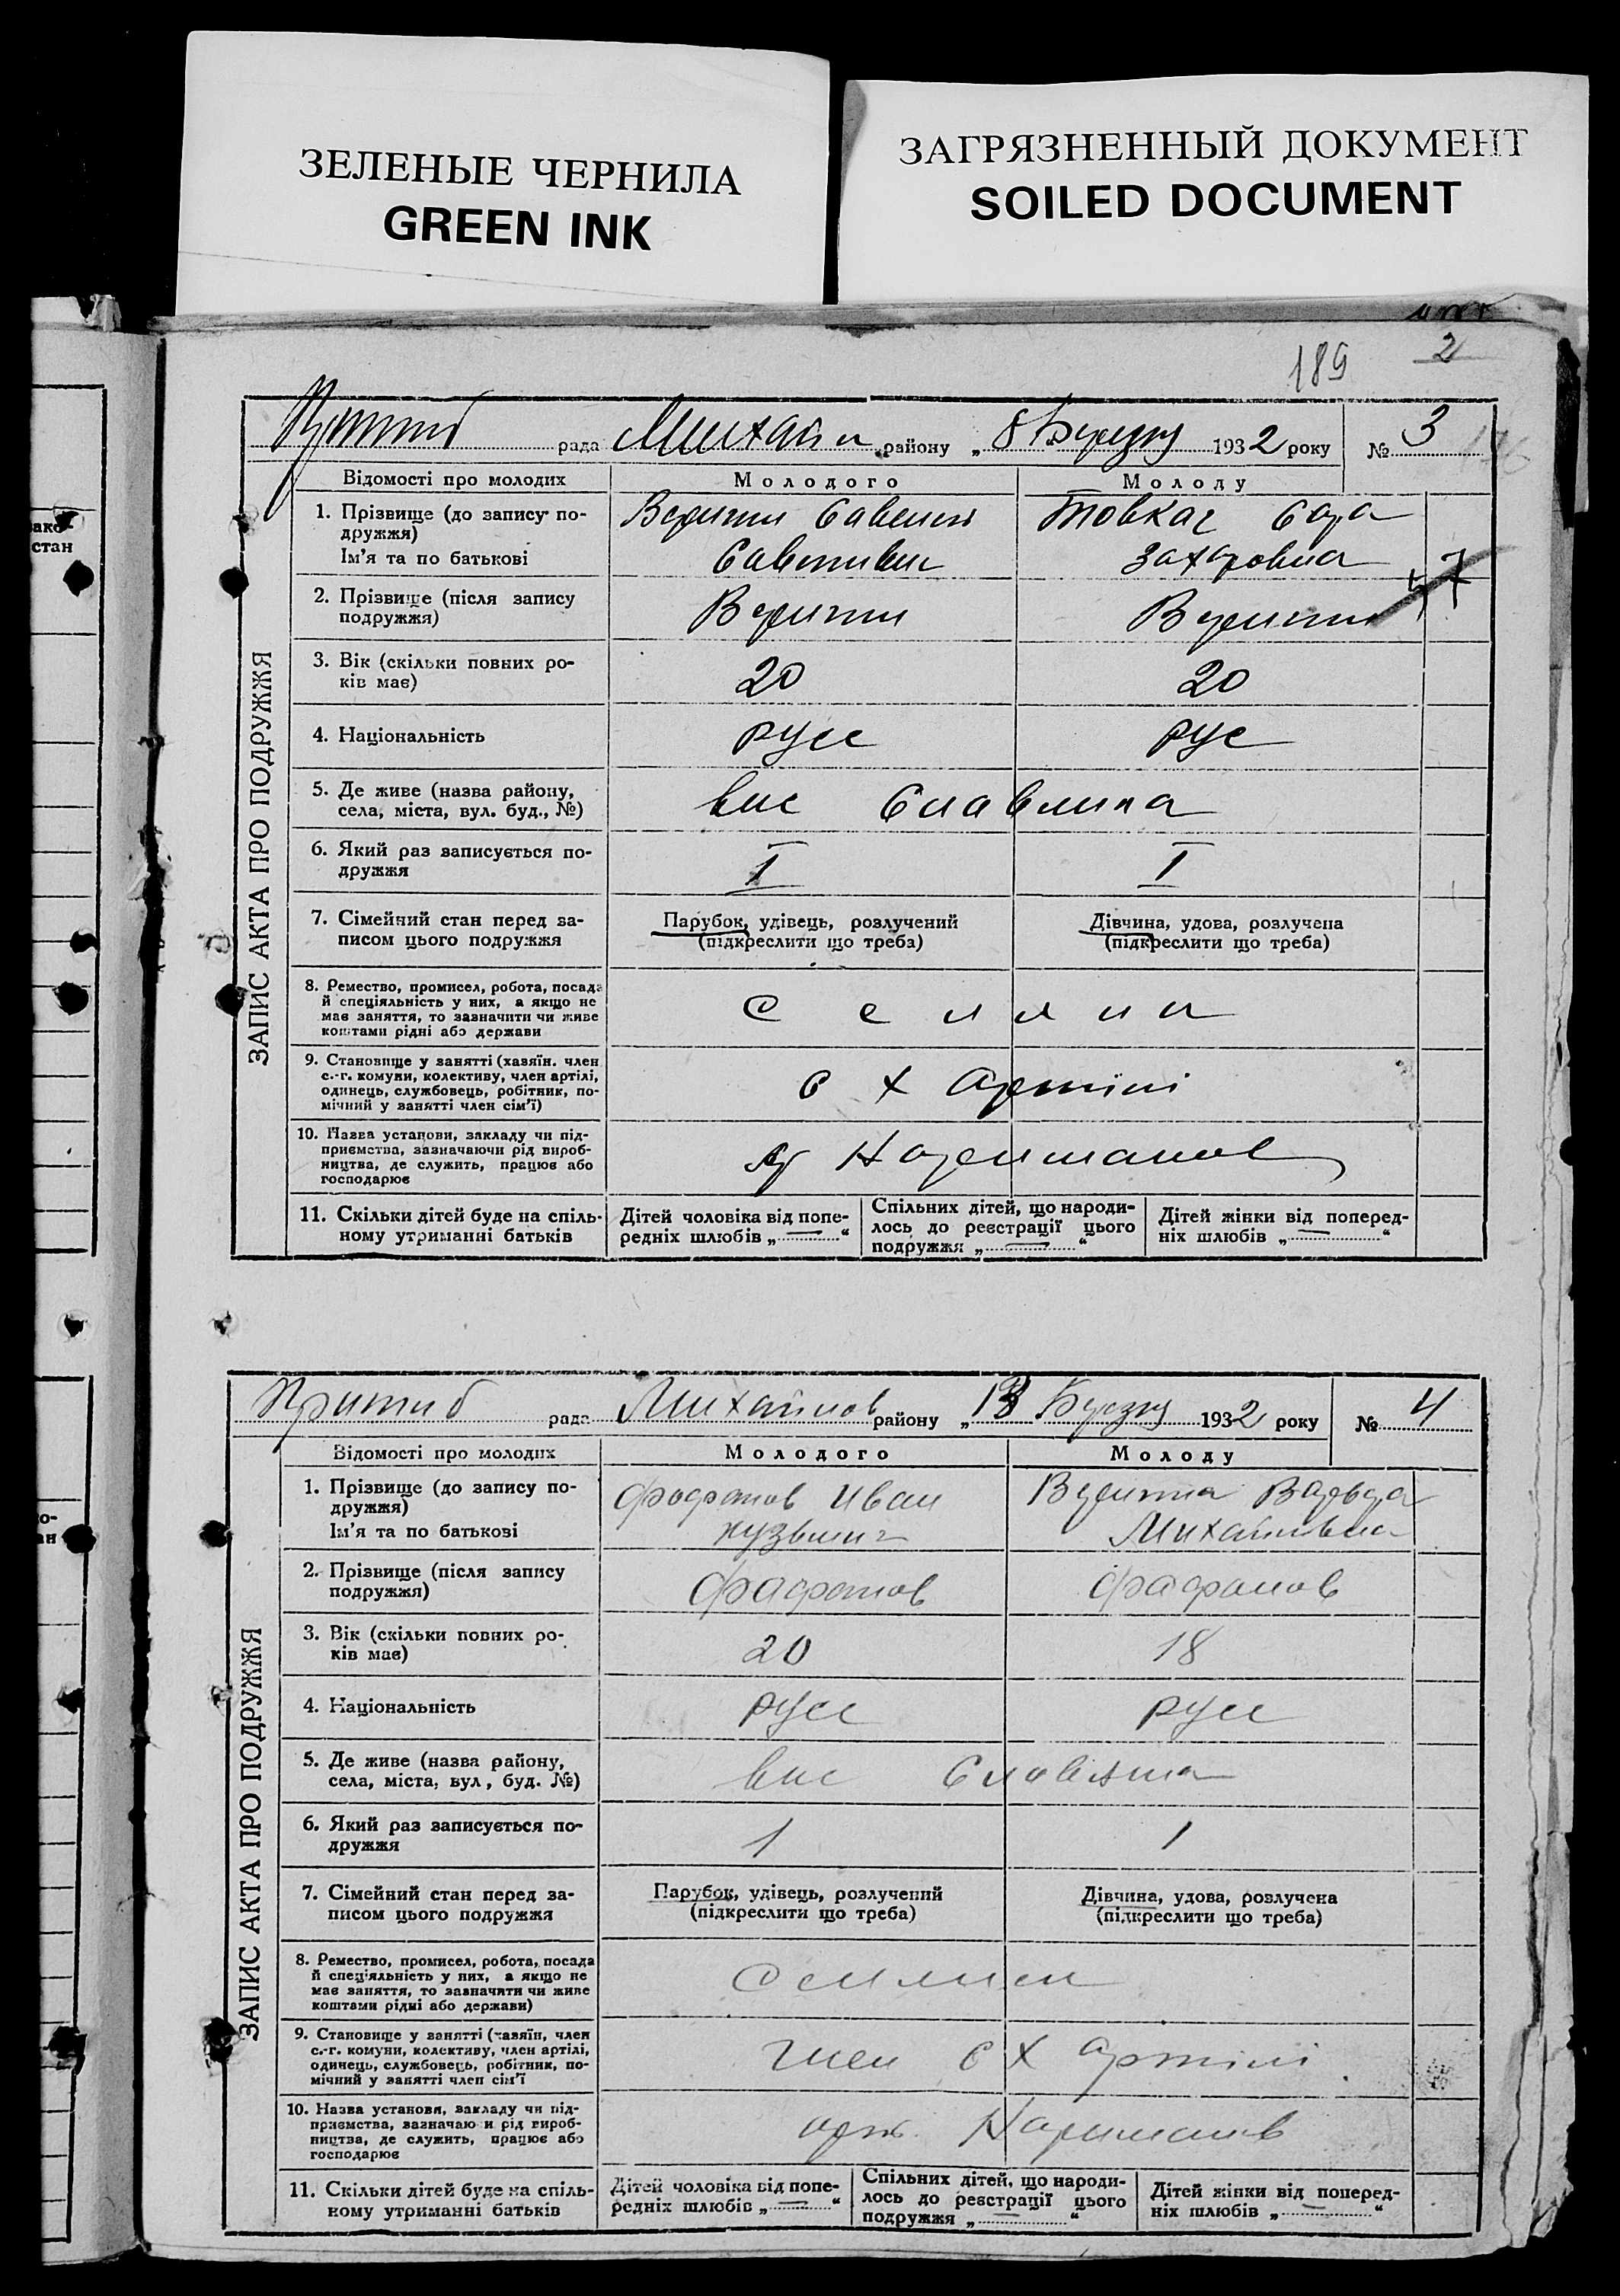 ЗЕЛЕНЫЕ ЧЕРНИЛА
GREEN INK
ЗАГРЯЗНЕННЫЙ ДОКУМЕНТ
SOILED DOCUMENT
2
189
рада Михайл району „ 8 Березня 1932 року № 3
176
Відомості про молодих Молодого Молоду
ЗАПИС АКТА ПРО ПОДРУЖЖЯ
1. Прізвище (до запису по-
дружжя)
Ім'я та по батькові
Товкач Сара
Захаровна
2. Прізвище (після запису
подружжя)
3. Вік (скільки повних ро-
ків має)
20 20
4. Національність
русс рус
5. Де живе (назва району,
села, міста, вул. буд., №)
вис Славянка
6. Який раз записується по-
дружжя
I I
7. Сімейний стан перед за-
писом цього подружжя
Парубок, удівець, розлучений
(підкреслити що треба)
Дівчина, удова, розлучена
(підкреслити що треба)
8. Ремество, промисел, робота, посада
й спеціяльність у них, а якщо не
має заняття, то зазначити чи живе
коштами рідні або держави
селяна
9. Становище у занятті (хавяїн. член
с.-г. комуни, колективу, член артілі,
одинець, службовець, робітник, по-
мічний у занятті член сім'ї)
с х артілі
10. Назва установи, закладу чи під-
приємства, зазначаючи рід вироб-
ництва, де служить, працює або
господарює
11. Скільки дітей буде на спіль-
ному утриманні батьків
Дітей чоловіка від попе-
редніх шлюбів „ — “
Спільних дітей, що народи-
лось до реєстрації цього
подружжя „ — “
Дітей жінки від поперед-
ніх шлюбів „ — “
Пришиб рада Михайлов району „ 13 Березня 1932 року № 4
Відомості про молодих Молодого Молоду
ЗАПИС АКТА ПРО ПОДРУЖЖЯ
1. Прізвище (до запису по-
дружжя)
Ім'я та по батькові
Фофанов Иван
кузьмич
Варвара
Михайловна
2. Прізвище (після запису
подружжя)
3. Вік (скільки повних ро-
ків має)
20 18
4. Національність
русс русс
5. Де живе (назва району,
села, міста, вул, буд. №)
вис Славянка
6. Який раз записується по-
дружжя
1 1
7. Сімейний стан перед за-
писом цього подружжя
Парубок, удівець, розлучений
(підкреслити що треба)
Дівчина, удова, розлучена
(підкреслити що треба)
8. Ремество, промисел, робота, посада
й спеціяльність у них, а якщо не
має заняття, то зазначити чи живе
коштами рідні або держави)
9. Становище у занятті (хавяїн, член
с.-г. комуни, колективу, член артілі,
одинець, службовець, робітник, по-
мічний у занятті член сім'ї
член с х артілі
10. Назва установи, закладу чи під-
приємства, зазначаю и рід вироб-
ництва, де служить, працює або
господарює
арт. Нариманов
11. Скільки дітей буде на спіль-
ному утриманні батьків
Дітей чоловіка від попе-
редніх шлюбів „ — “
Спільних дітей, що народи-
лось до реєстрації цього
подружжя „ — “
Дітей жінки від поперед-
ніх шлюбів „ — “